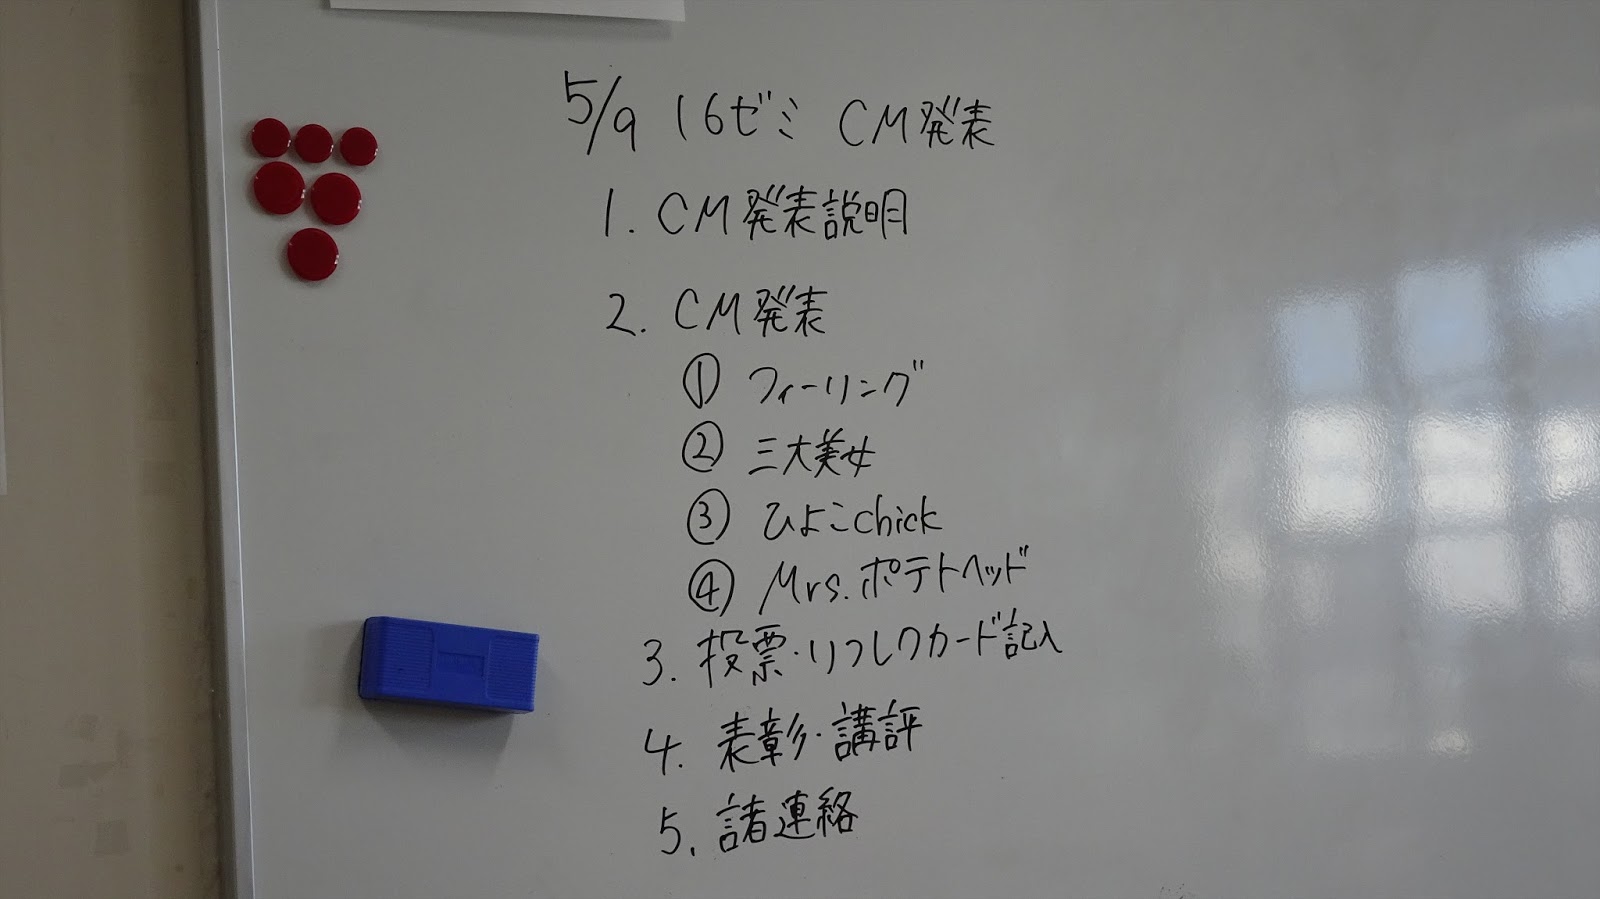 5/9 16ゼミ CM発表
1. CM発表説明
2. CM発表
① フィーリング
② 三大美女
③ ひよこchick
④ Mrs.ポテトヘッド
3. 投票・リフレクカード記入
4. 表彰・講評
5. 諸連絡